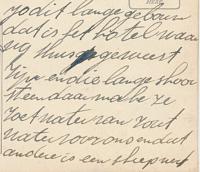 zo dit lange gebouw
dat is het hotel waar
wij thuis geweest
zijn en die lange schoor
steen daar maken ze
zoet water van zout
water voor ons en dat
andere is een sleepboot